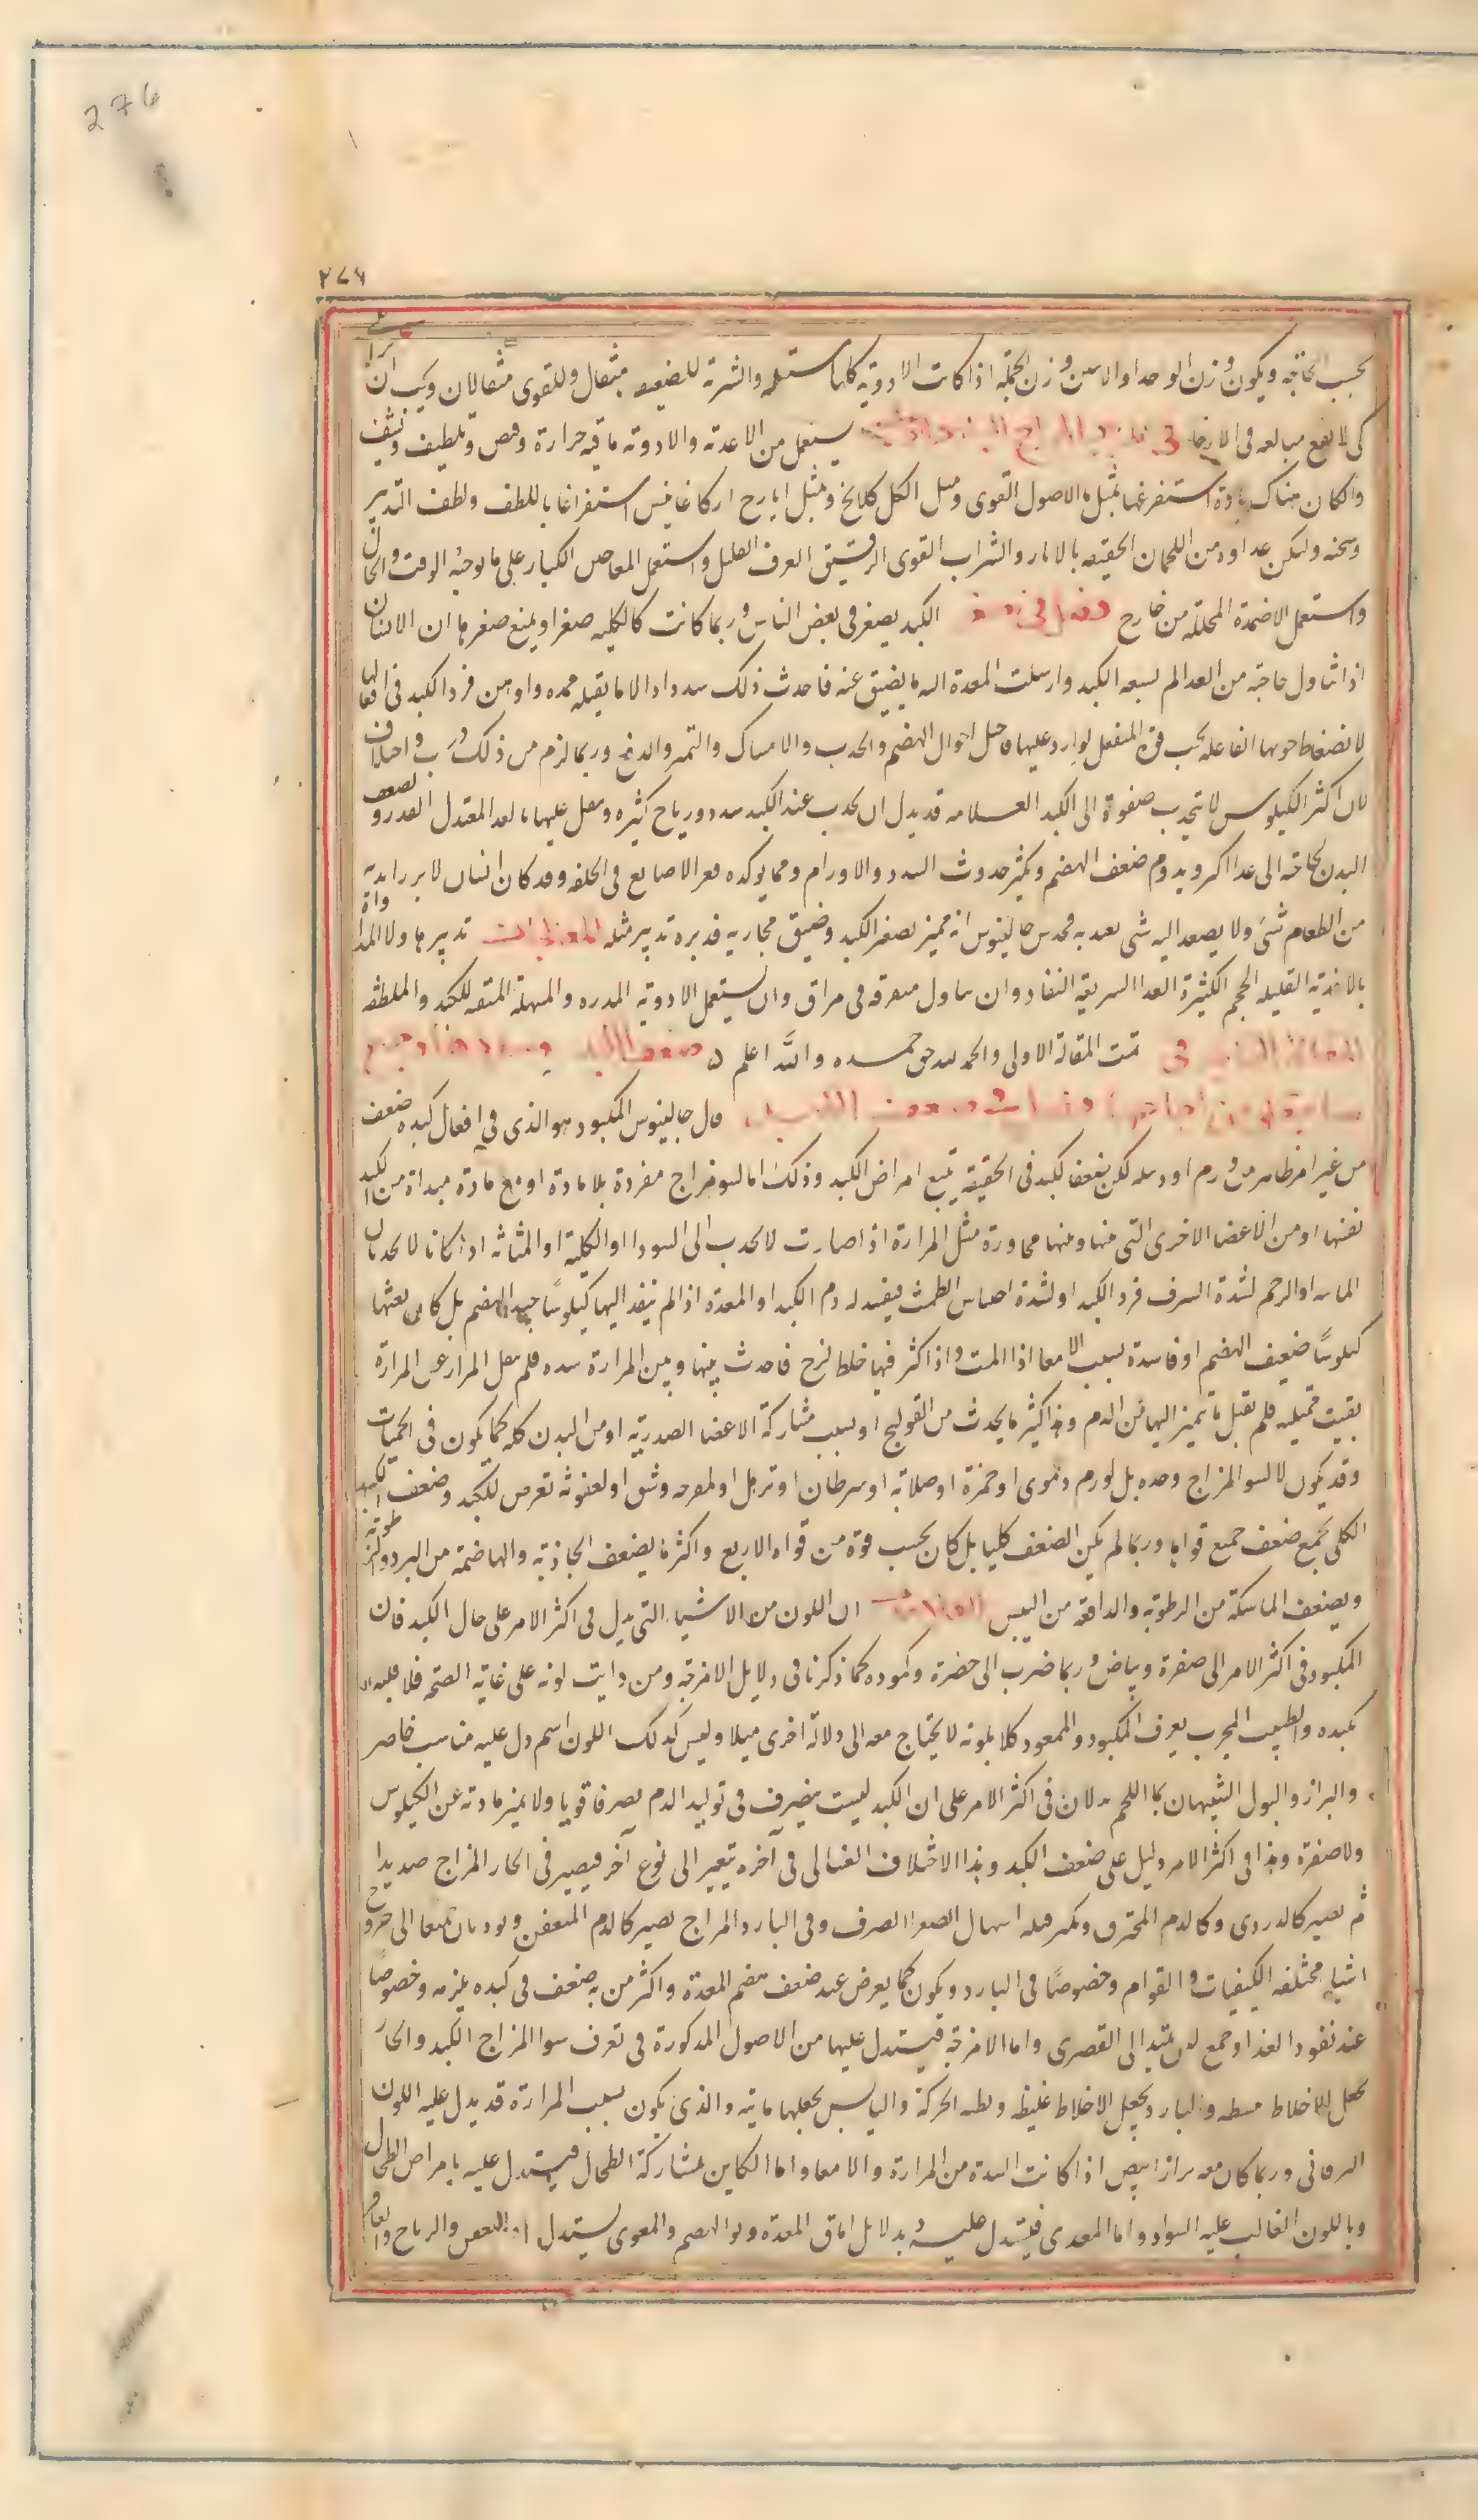 276
٢٧٦
بحسب الحاجة ويكون وزن الواحد او الاثنين وزن الجملة اذا كانت الادوية كلها مستعملة والشربة للضعيف مثقال وللقوى مثقالان ويجب ان يراعى
كى لا يقع مبالغه فى الارخا فى يستعمل من الاغذية والادوية ما فيه حرارة وقبض وتلطيف وتنشيف
وان كان هناك مادة استفرغها بمثل ماء الاصول القوى ومثل وبمثل ايارج اركاغانيس استفراغا باللطف ولطف التدبير
وسخنه وليكن غذاوه من اللحمان الخفيفه بالابازير والشراب القوى الرقيق الصرف القليل واستعمل المعاجين الكبار على ما يوجبه الوقت والحال
واستعمل الاضمدة المحللة من خارج فصل فى الكبد يصغر فى بعض الناس وربما كانت كالكليه صغرا ويتبع صغرها ان الانسان
اذا تناول حاجته من الغدا لم يسعه الكبد وارسلت المعدة اليه ما يضيق عنه فاحدث ذلك سددا والاما ثقيله ممدده واوهن قوى الكبد فى افعالها
لانضغاط قوتها الفاعله تحت قوة المنفعل الوارد عليها فاختل احوال الهضم والجذب والامساك والتميز والدفع وربما لزم من ذلك ذرب واختلاف
لان اكثر الكيلوس لا ينجذب صفوته الى الكبد العلامه قد يدل ان يحدث عند الكبد سدد ورياح كثيره ويثقل عليها الغذا المعتدل القدر ويضعف
البدن لحاجته الى غذا اكثر ويدوم ضعف الهضم ويكثر حدوث السدد والاورام ومما يوكده قصر الاصابع فى الخلقه وقد كان انسان لا يرزا بدنه
من الطعام شئ ولا يصعد اليه شى يعتد به فحدس جالينوس انه ممنو بصغر الكبد وضيق مجاريه فدبره تدبير مثله المعالجات تدبيرها ولا المداواة
بالاغذية القليله الحجم الكثيرة الغدا السريعة النفاد وان يتناول متفرقه فى مرات وان يستعمل الادوية المدره والمسهله المنقيه للكبد والملطفه
المقالة الثانية فى تمت المقالة الاولى والحمد لله حق حمده والله اعلم ضعف الكبد
قال جالينوس المكبود هو الذى فى افعال كبده ضعف
من غير امر ظاهر من ورم او دبيله لكن ضعف الكبد فى الحقيقة يتبع امراض الكبد وذلك اما لسو مزاج مفردة بلا مادة او مع مادة مبداة من الكبد
نفسها او من الاعضا الاخرى التى بينها وبينها مجاورة مثل المرارة اذا صارت لا تجذب الى السودا او الكلية او المثانه اذا كانا لا يجذبان
المائيه او الرحم لشدة النزف فبرد الكبد او لشدة احتباس الطمث فيفسد له دم الكبد او المعدة اذا لم ينفذ اليها كيلوسًا جيد الهضم بل كان بعثها
كيلوسًا ضعيف الهضم او فاسدة بسبب الامعا اذا المت واذا كثر فيها خلط لزج فاحدث بينها وبين المرارة سده فلم يصل المرار عن المرارة
بقيت ممتليه فلم تقبل ما يتميز اليها من الدم وهذا كثير ما يحدث من القولنج او بسبب مشاركة الاعضا الصدرية او من البدن كله كما يكون فى الحميات
وقد يكون لا لسو المزاج وحده بل لورم دموى او حمرة او صلابة او سرطان او ترهل او لقرحه وشق او لعفونة تعرض للكبد وضعف الكبد
الكلى يجمع ضعف جميع قواها وربما لم يكن الضعف كليا بل كان بحسب قوة من قواه الاربع واكثر ما يضعف الجاذبة والهاضمة من البرد والرطوبة
ويضعف الماسكة من الرطوبة والدافعة من اليبس العلامات ان اللون من الاشيا التى يدل فى اكثر الامر على حال الكبد فان
المكبود فى اكثر الامر الى صفرة وبياض وربما ضرب الى خضرة وكموده كما ذكرنا فى دلايل الامزجة ومن رايت لونه على غاية الصحة فلا قلبه
بكبده والطبيب المجرب يعرف المكبود والممعود كلا بلونه لا يحتاج معه الى دلالة اخرى مثلا وليس لذلك اللون اسم يدل عليه مناسب خاصر
والبراز والبول الشبيهان بماء اللحم يدلان فى اكثر الامر على ان الكبد ليست يتصرف فى توليد الدم تصرفا قويا ولا يميز مادته عن الكيلوس
ولا صفوة وهذا فى اكثر الامر دليل على ضعف الكبد وهذا الاختلاف الغسالى فى اخره يتغير الى نوع اخر فيصير فى الحار المزاج صديديا
ثم يصير كالدردى وكالدم المحترق ويكون قبله اسهال الصفرا الصرف وفى البارد المزاج يصير كالدم المتعفن ويوديان جميعا الى خروج
اشياء مختلفه الكيفيات والقوام وخصوصًا فى البارد ويكون كما يعرض عند ضعف هضم المعدة واكثر من به ضعف فى كبده يلزمه وخصوصًا
عند نفود الغذا وجع لين يمتد الى القصرى واما الامزجة فيستدل عليها من الاصول المذكورة فى تعرف سوا المزاج الكبد والحار
يجعل الاخلاط والبارد يجعل الاخلاط غليظه بطيه الحركة واليابس يجعلها والذى يكون بسبب المرارة قد يدل عليه اللون
اليرقانى وربما كان معه براز ابيض اذا كانت السدة من المرارة والامعا واما الكاين بمشاركة الطحال فيستدل عليه بامراض الطحال
وباللون الغالب عليه السواد واما المعدى فيستدل عليه بدلايل افات المعدة وسو الهضم والمعوى يستدل المغص والرياح والقراقر